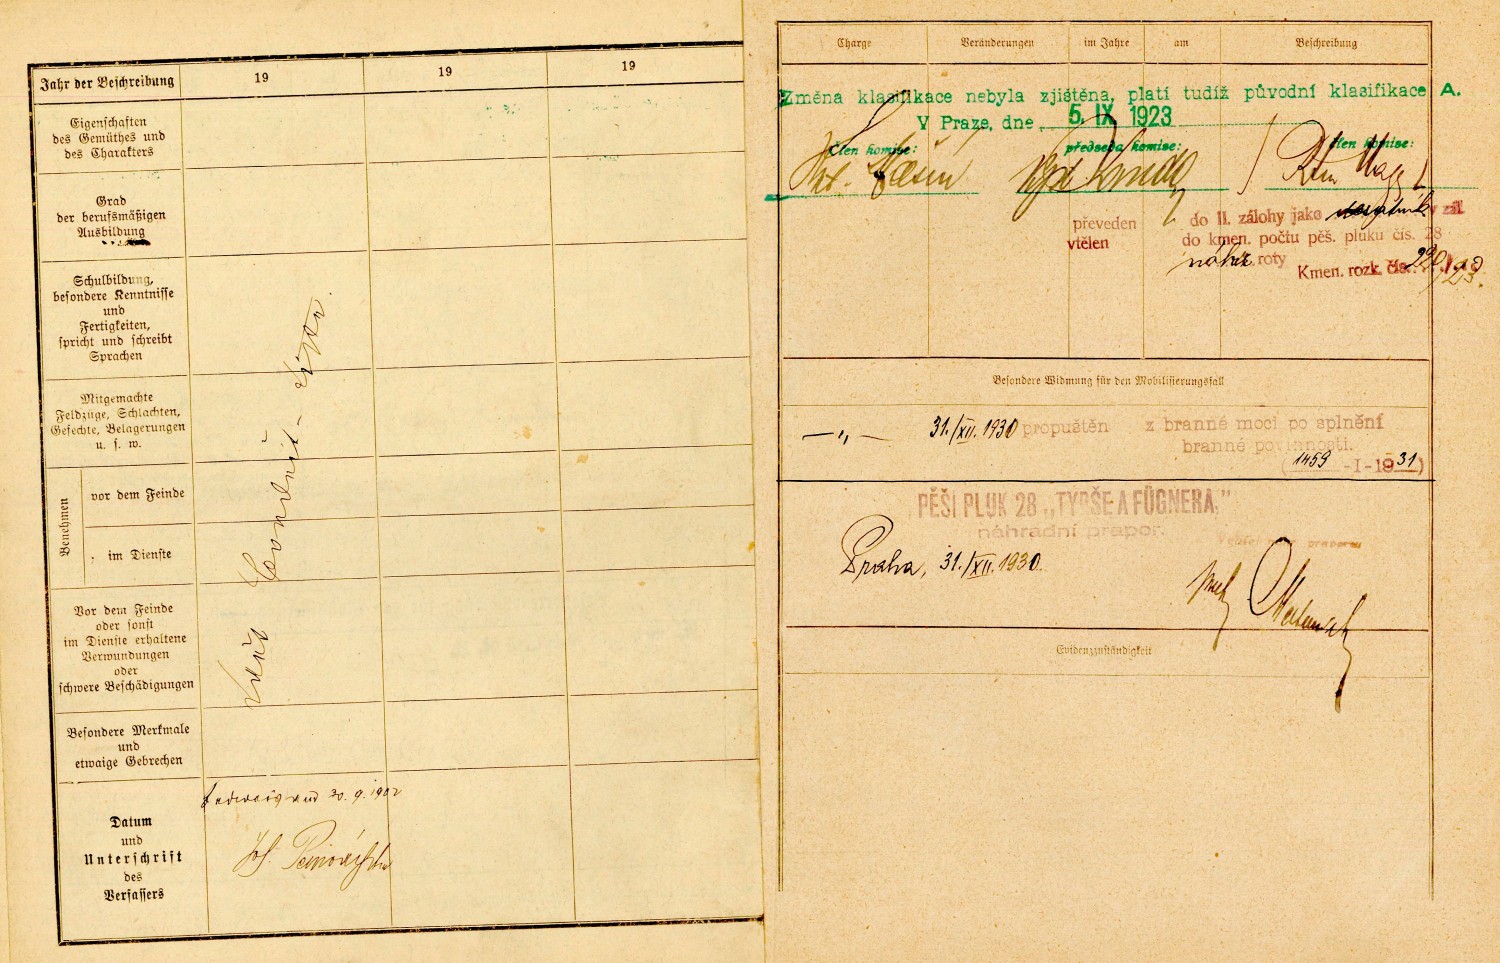 Jahr der Beschreibung
19
19
19
Eigenschaften
des Gemüthes und
des Charakters
Grad
der berufsmäßigen
Ausbildung
Schulbildung,
besondere Kenntnisse
und
Fertigkeiten,
spricht und schreibt
Sprachen
Mitgemachte
Feldzüge, Schlachten,
Gefechte, Belagerungen
u. s. w.
Benehmen
vor dem Feinde
im Dienste
Vor dem Feinde
oder sonst
im Dienste erhaltene
Verwundungen
oder
schwere Beschädigungen
Besondere Merkmale
und
etwaige Gebrechen
Datum
und
Unterschrift
des
Verfassers
30. 9. 1902
Jos.
Charge
Veränderungen
im Jahre
am
Beschreibung
Změna klasifikace nebyla zjištěna, platí tudíž původní klasifikace A.
V Praze, dne 5. IX 1923
člen komise:
předseda komise:
člen komise:
převeden
do II. zálohy jako v zál.
vtělen
do kmen. počtu pěš. pluku čís. 28
roty
Kmen. rozk. čís.
Besondere Widmung für den Mobilisierungsfall
— „ —
31./XII. 1930 propuštěn z branné moci po splnění
branné povinnosti.
(1459 -I-1931)
PĚŠÍ PLUK 28 „TYRŠE A FÜGNERA,"
náhradní prapor.
Praha, 31./XII. 1930.
Evidenzzuständigkeit